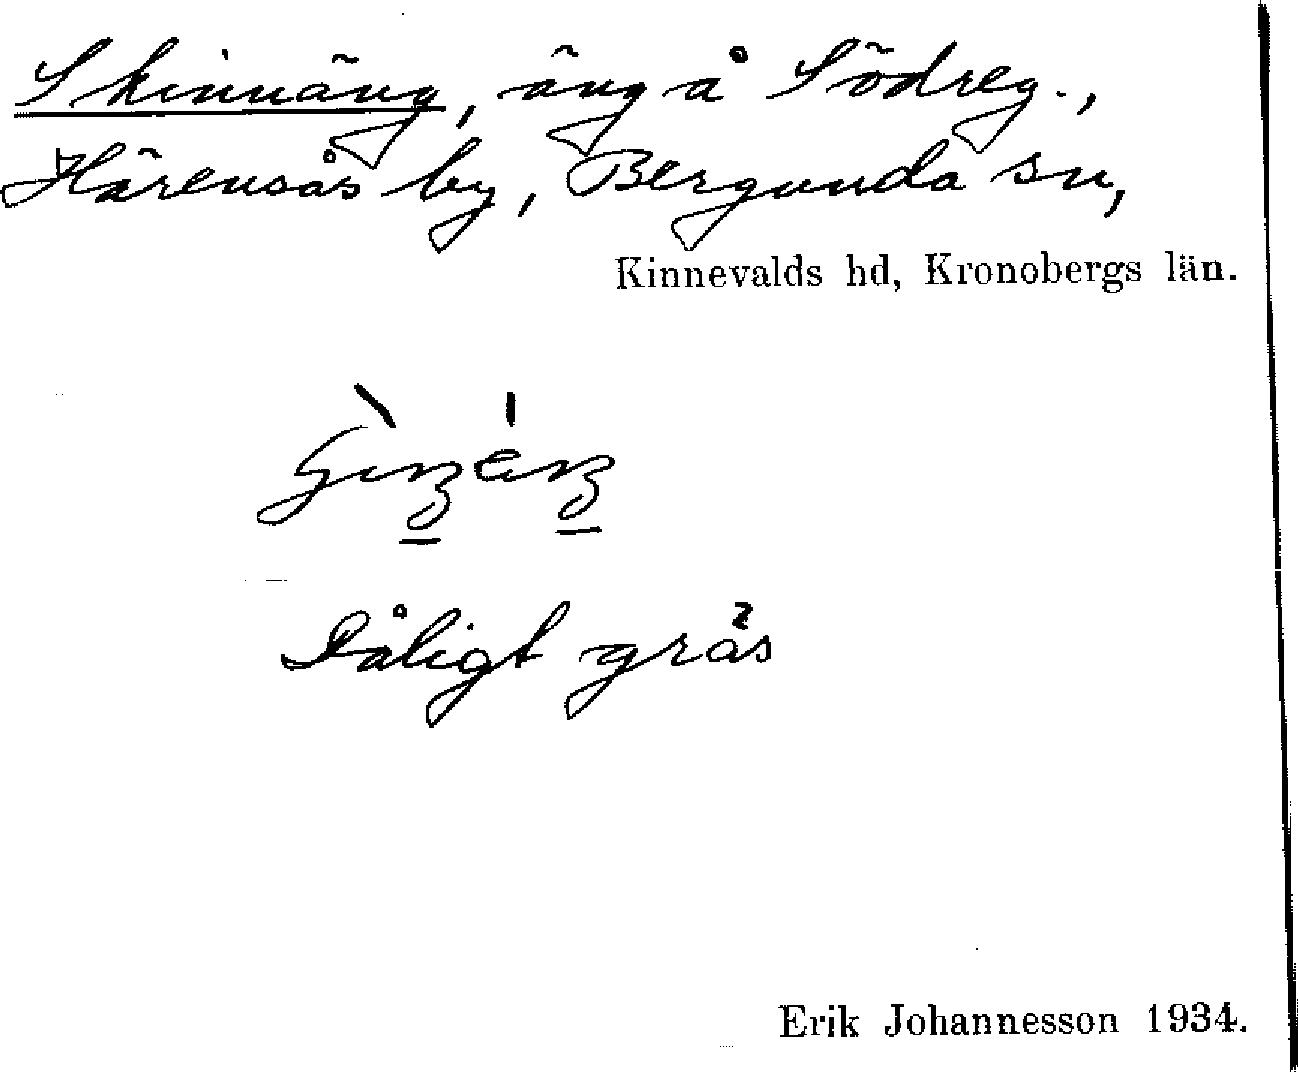 Skinnäng, äng å Södreg.,
Härensås by, Bergunda sn,
Kinnevalds hd, Kronobergs län.
Dåligt gräs
Erik Johannesson 1934.